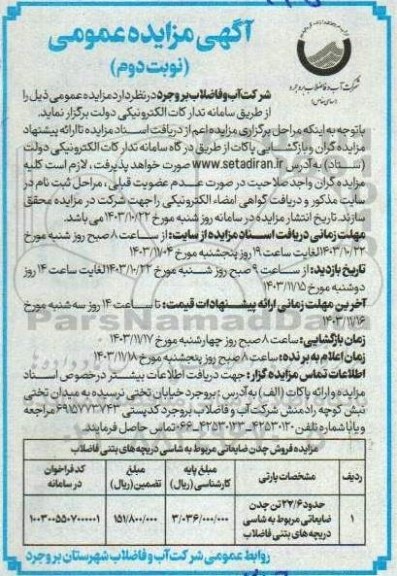 آگهی مزایده عمومی
(نوبت دوم)
شرکت آب و فاضلاب بروجرد
(سهامی خاص)
شرکت آب و فاضلاب بروجرد در نظر دارد مزایده عمومی ذیل را
از طریق سامانه تدارکات الکترونیکی دولت برگزار نماید.
با توجه به اینکه مراحل برگزاری مزایده اعم از دریافت اسناد مزایده تا ارائه پیشنهاد
مزایده گران و بازگشایی پاکات از طریق درگاه سامانه تدارکات الکترونیکی دولت
(ستاد) به آدرس www.setadiran.ir صورت خواهد پذیرفت، لازم است کلیه
مزایده گران واجد صلاحیت در صورت عدم عضویت قبلی، مراحل ثبت نام در
سایت مذکور و دریافت گواهی امضاء الکترونیکی را جهت شرکت در مزایده محقق
سازند. تاریخ انتشار مزایده در سامانه روز شنبه مورخ ۱۴۰۳/۱۰/۲۲ می باشد.
مهلت زمانی دریافت اسناد مزایده از سایت: از ساعت ۸ صبح روز شنبه مورخ
۱۴۰۳/۱۰/۲۲ لغایت ساعت ۱۹ روز پنجشنبه مورخ ۱۴۰۳/۱۱/۰۴
تاریخ بازدید: از ساعت ۹ صبح روز شنبه مورخ ۱۴۰۳/۱۰/۲۲ لغایت ساعت ۱۴ روز
دوشنبه مورخ ۱۴۰۳/۱۱/۱۵
آخرین مهلت زمانی ارائه پیشنهادات قیمت: تا ساعت ۱۴ روز سه شنبه مورخ
۱۴۰۳/۱۱/۱۶
زمان بازگشایی: ساعت ۸ صبح روز چهارشنبه مورخ ۱۴۰۳/۱۱/۱۷
زمان اعلام به برنده: ساعت ۸ صبح روز پنجشنبه مورخ ۱۴۰۳/۱۱/۱۸
اطلاعات تماس مزایده گزار: جهت دریافت اطلاعات بیشتر در خصوص اسناد
مزایده و ارائه پاکات (الف) به آدرس: بروجرد خیابان تختی نرسیده به میدان تختی
نبش کوچه رادمنش شرکت آب و فاضلاب بروجرد کدپستی ۶۹۱۵۷۷۳۷۴۳ مراجعه
و یا با شماره تلفن ۴۲۵۳۰۱۲۰-۴۲۵۳۰۱۲۳-۰۶۶ تماس حاصل فرمایند.
مزایده فروش چدن ضایعاتی مربوط به شاسی دریچه های بتنی فاضلاب
ردیف مشخصات پارتی مبلغ پایه کارشناسی (ریال) مبلغ تضمین (ریال) کد فراخوان در سامانه
۱ حدود ۲۷/۶ تن چدن ضایعاتی مربوط به شاسی دریچه های بتنی فاضلاب ۳/۰۳۶/۰۰۰/۰۰۰ ۱۵۱/۸۰۰/۰۰۰ ۱۰۰۳۰۰۵۵۰۷۰۰۰۰۰۱
روابط عمومی شرکت آب و فاضلاب شهرستان بروجرد
ParsNamadData